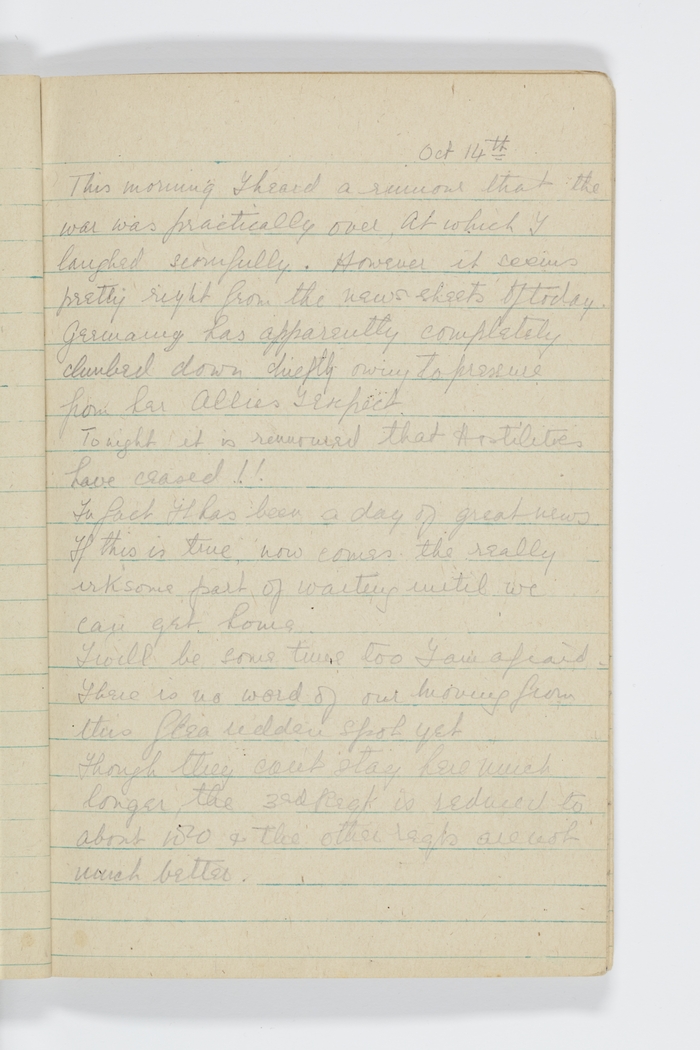 Oct 14th
This morning I heard a rumour that the
war was practically over, At which I
laughed scornfully. However it seems
pretty right from the news sheets of today.
Germany has apparently completely
climbed down chiefly owing to pressure
from her Allies I expect.
Tonight it is rumoured that Hostilities
have ceased !!
In fact It has been a day of great news
If this is true, now comes the really
irksome part of waiting until we
can get home
I will be some time too I am afraid.
There is no word of our moving from
this flea ridden spot yet
Though they cant stay here much
longer, the 3rd Regt is reduced to
about & the other regts are not
much better.